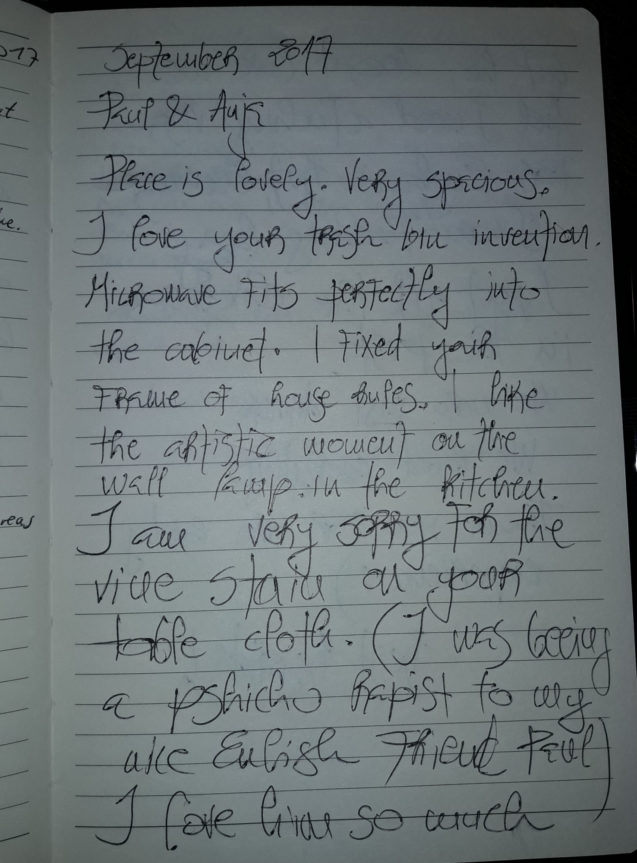 2017
t
he.
reas
September 2017
Paul & Anja
Place is lovely. Very spacious.
I love your trash bin invention.
Microwave fits perfectly into
the cabinet. I fixed your
frame of house rules. I like
the artistic moment on the
wall lamp in the kitchen.
I am very sorry for the
vine stain on your
table cloth. (I was beeing
a pshicho rapist to my
nice English Friend Paul)
I love him so much